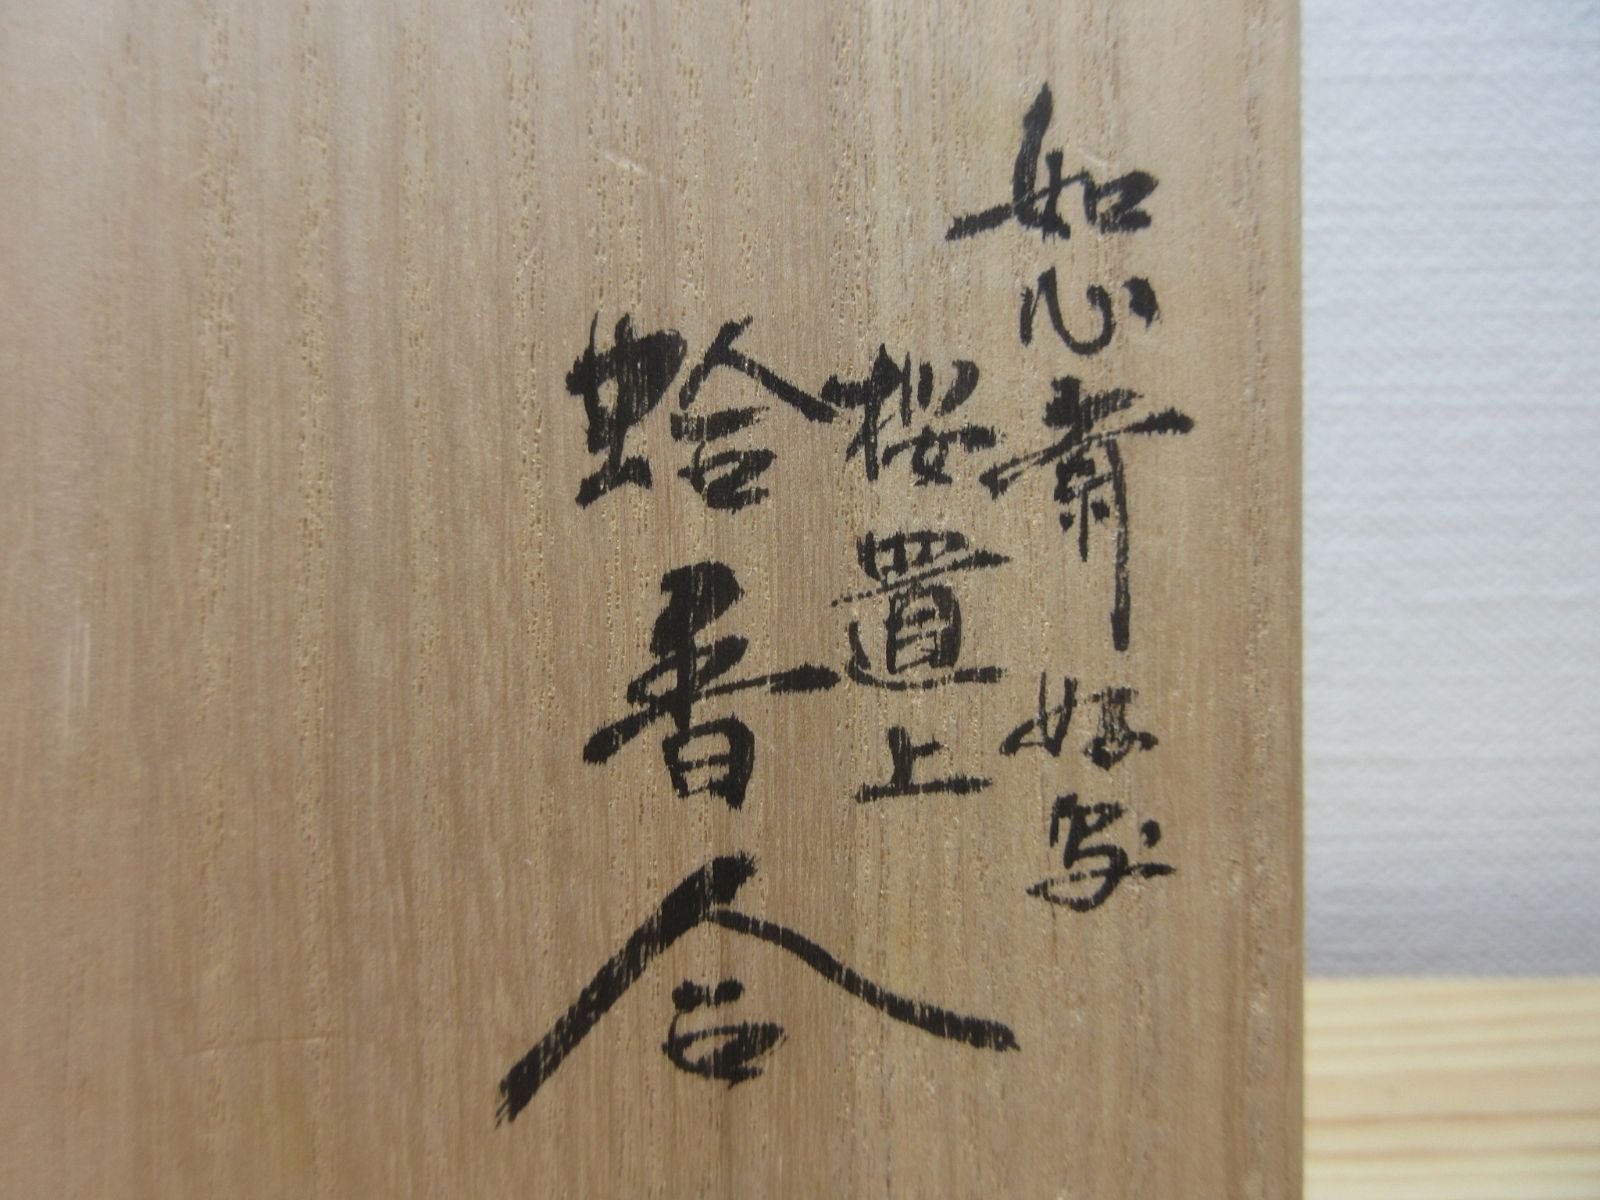 如心斎好写
桜置上
蛤香合